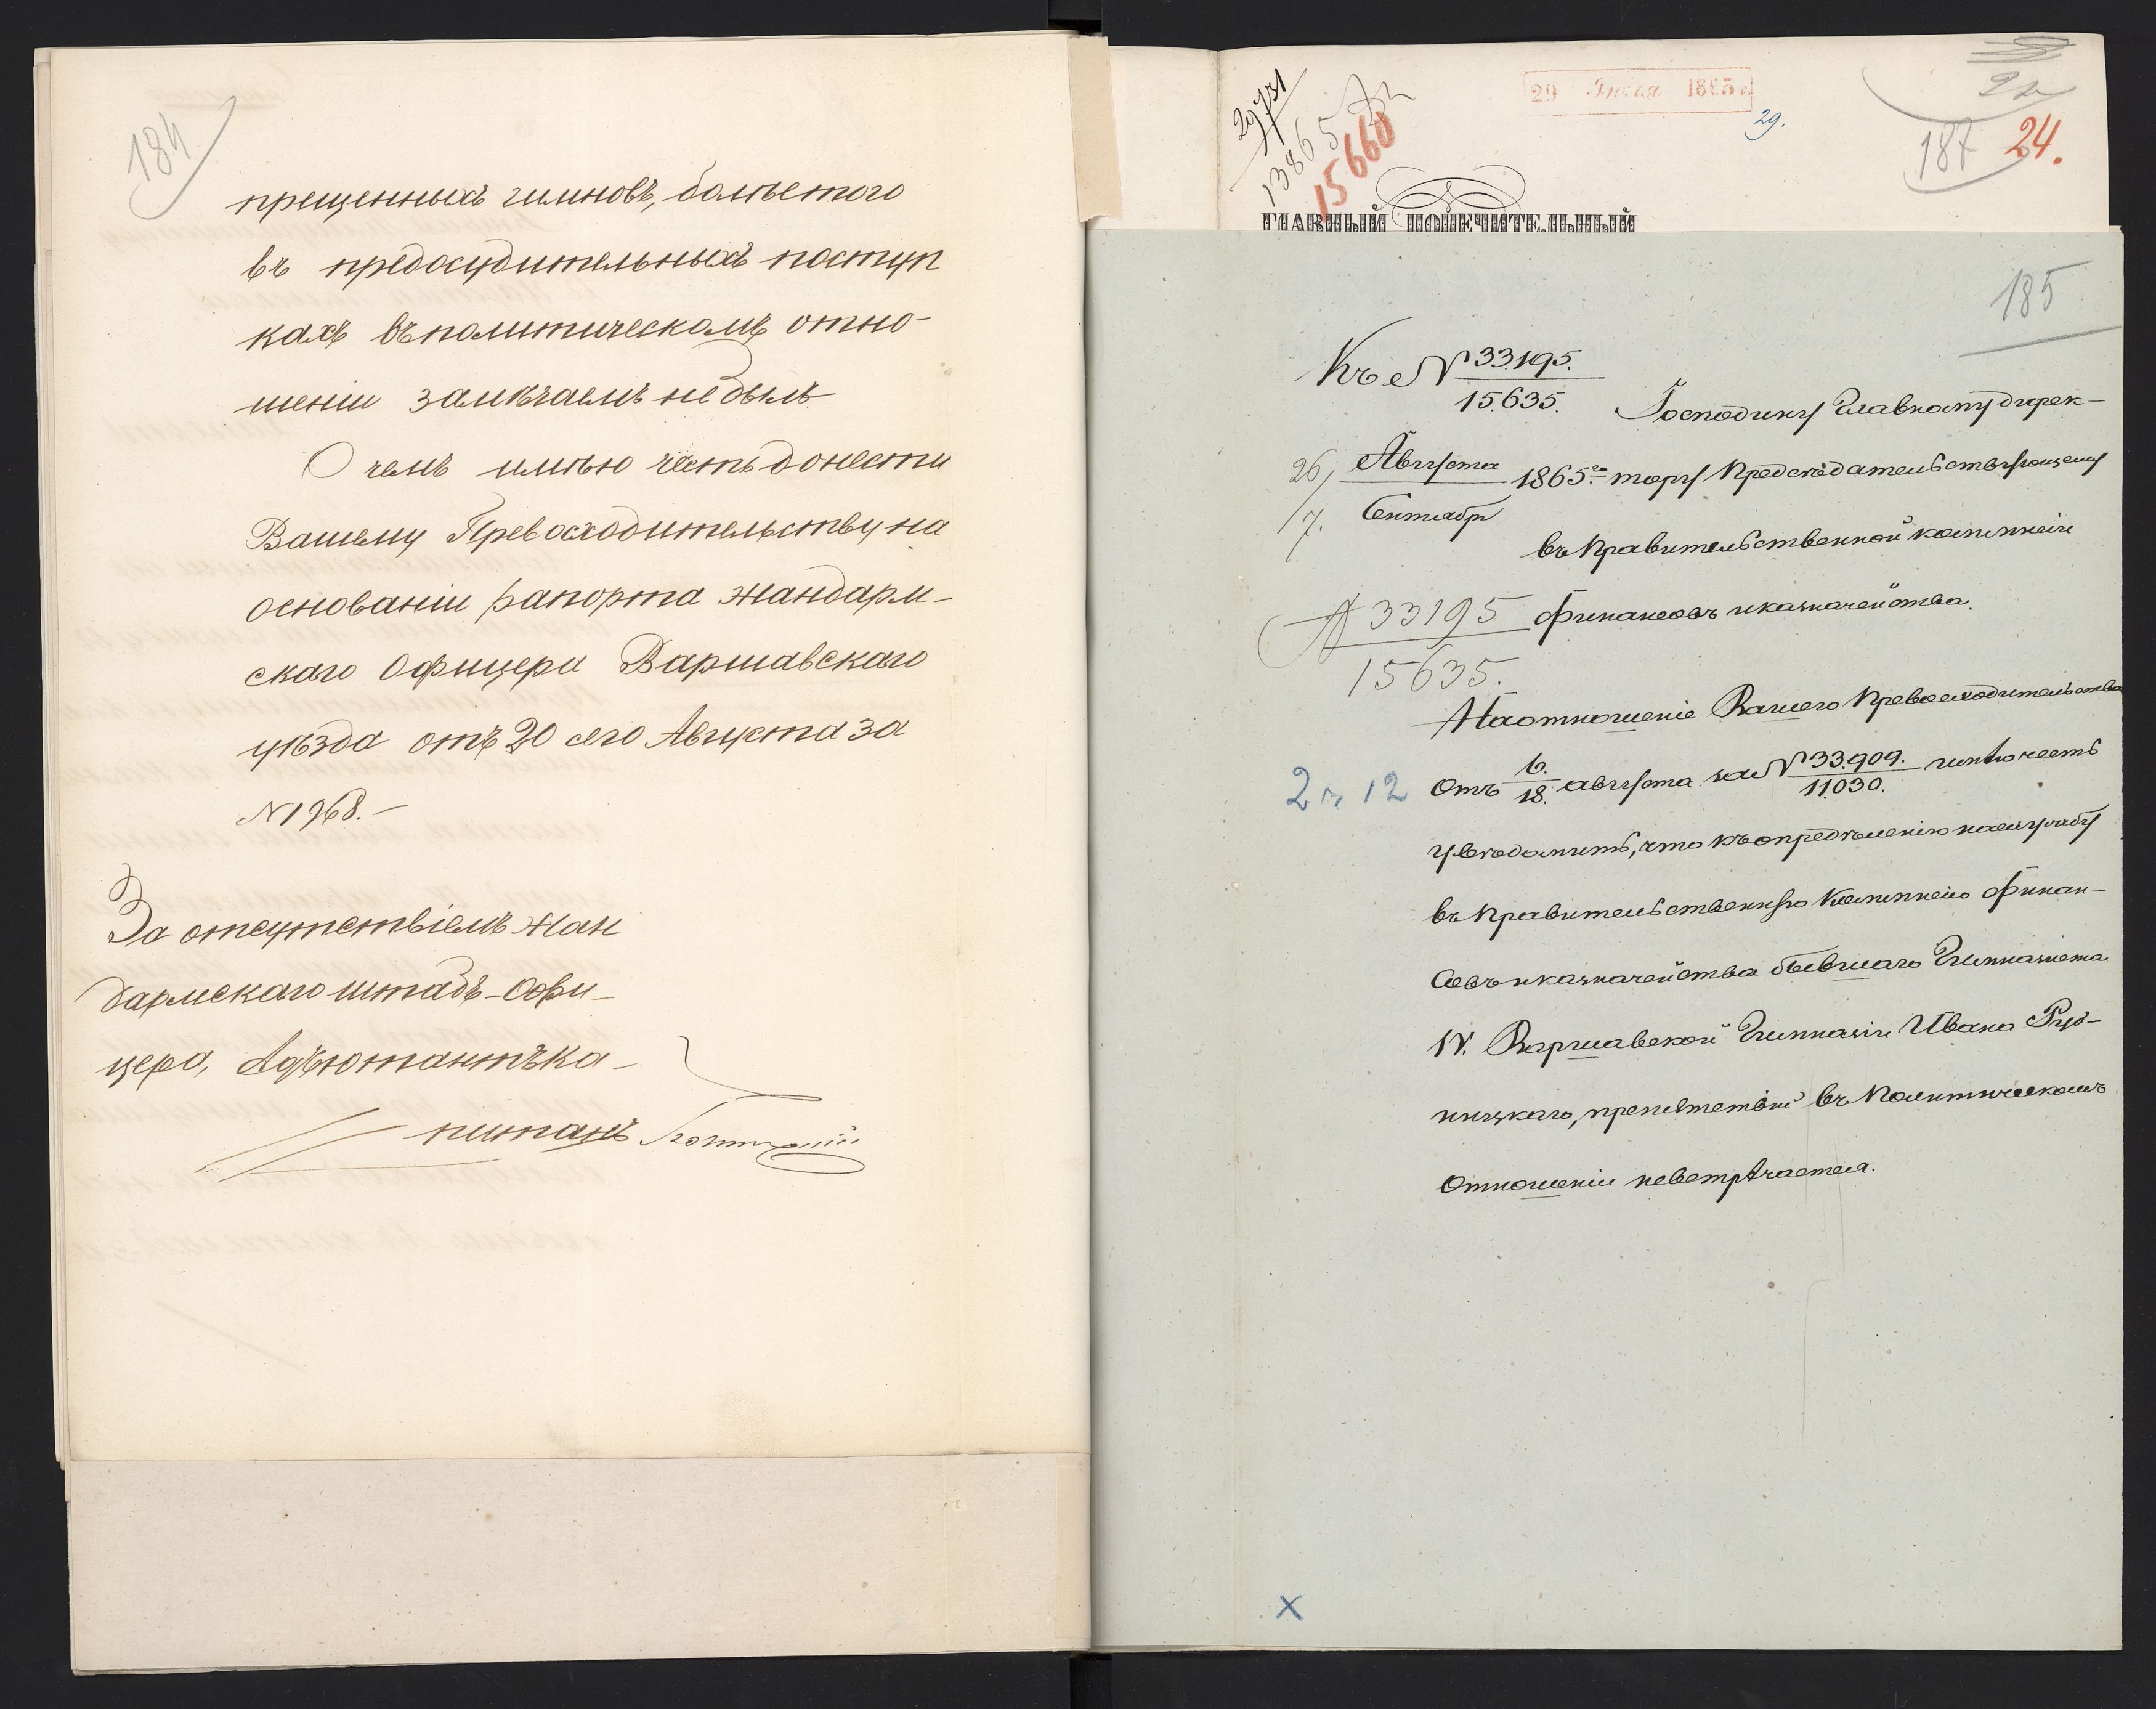 184
прещенныхъ гимновъ, болѣе того
въ предосудительныхъ поступ
кахъ въ политическомъ отно-
шеніи замѣчаемъ не былъ
О чемъ имѣю честь донести
Вашему Превосходительству на
основаніи рапорта жандарм-
скаго Офицера Варшавскаго
уѣзда отъ 20 сего Августа за
№ 1968.-
За отсутствіемъ жан
дармскаго штабъ-Офи-
цера, Адъютантъ ка-
питанъ
29731
13865
15660
29 Іюля 1865
29.
187 24.
ГЛАВНЫЙ ПОПЕЧИТЕЛЬНЫЙ
185
Къ № 33195.
15.635.
Господину Главному дирек-
26/7. Августа/Сентября 1865.го тору Предсѣдательствующему
въ Правительственной коммисіи
№ 33195 Финансовъ и казначейства.
15635.
На отношеніе Вашего Превосходительства
2 12 Отъ 6./18. августа за № 33.909./11.030. имѣю честь
увѣдомить, что къ опредѣленію на службу
въ Правительственную Коммисію Финан-
совъ и казначейства бывшаго Гимназиста
IV. Варшавской Гимназіи Ивана Руд-
ницкаго, препятствій въ Политическомъ
Отношеніи не встрѣчается.
x